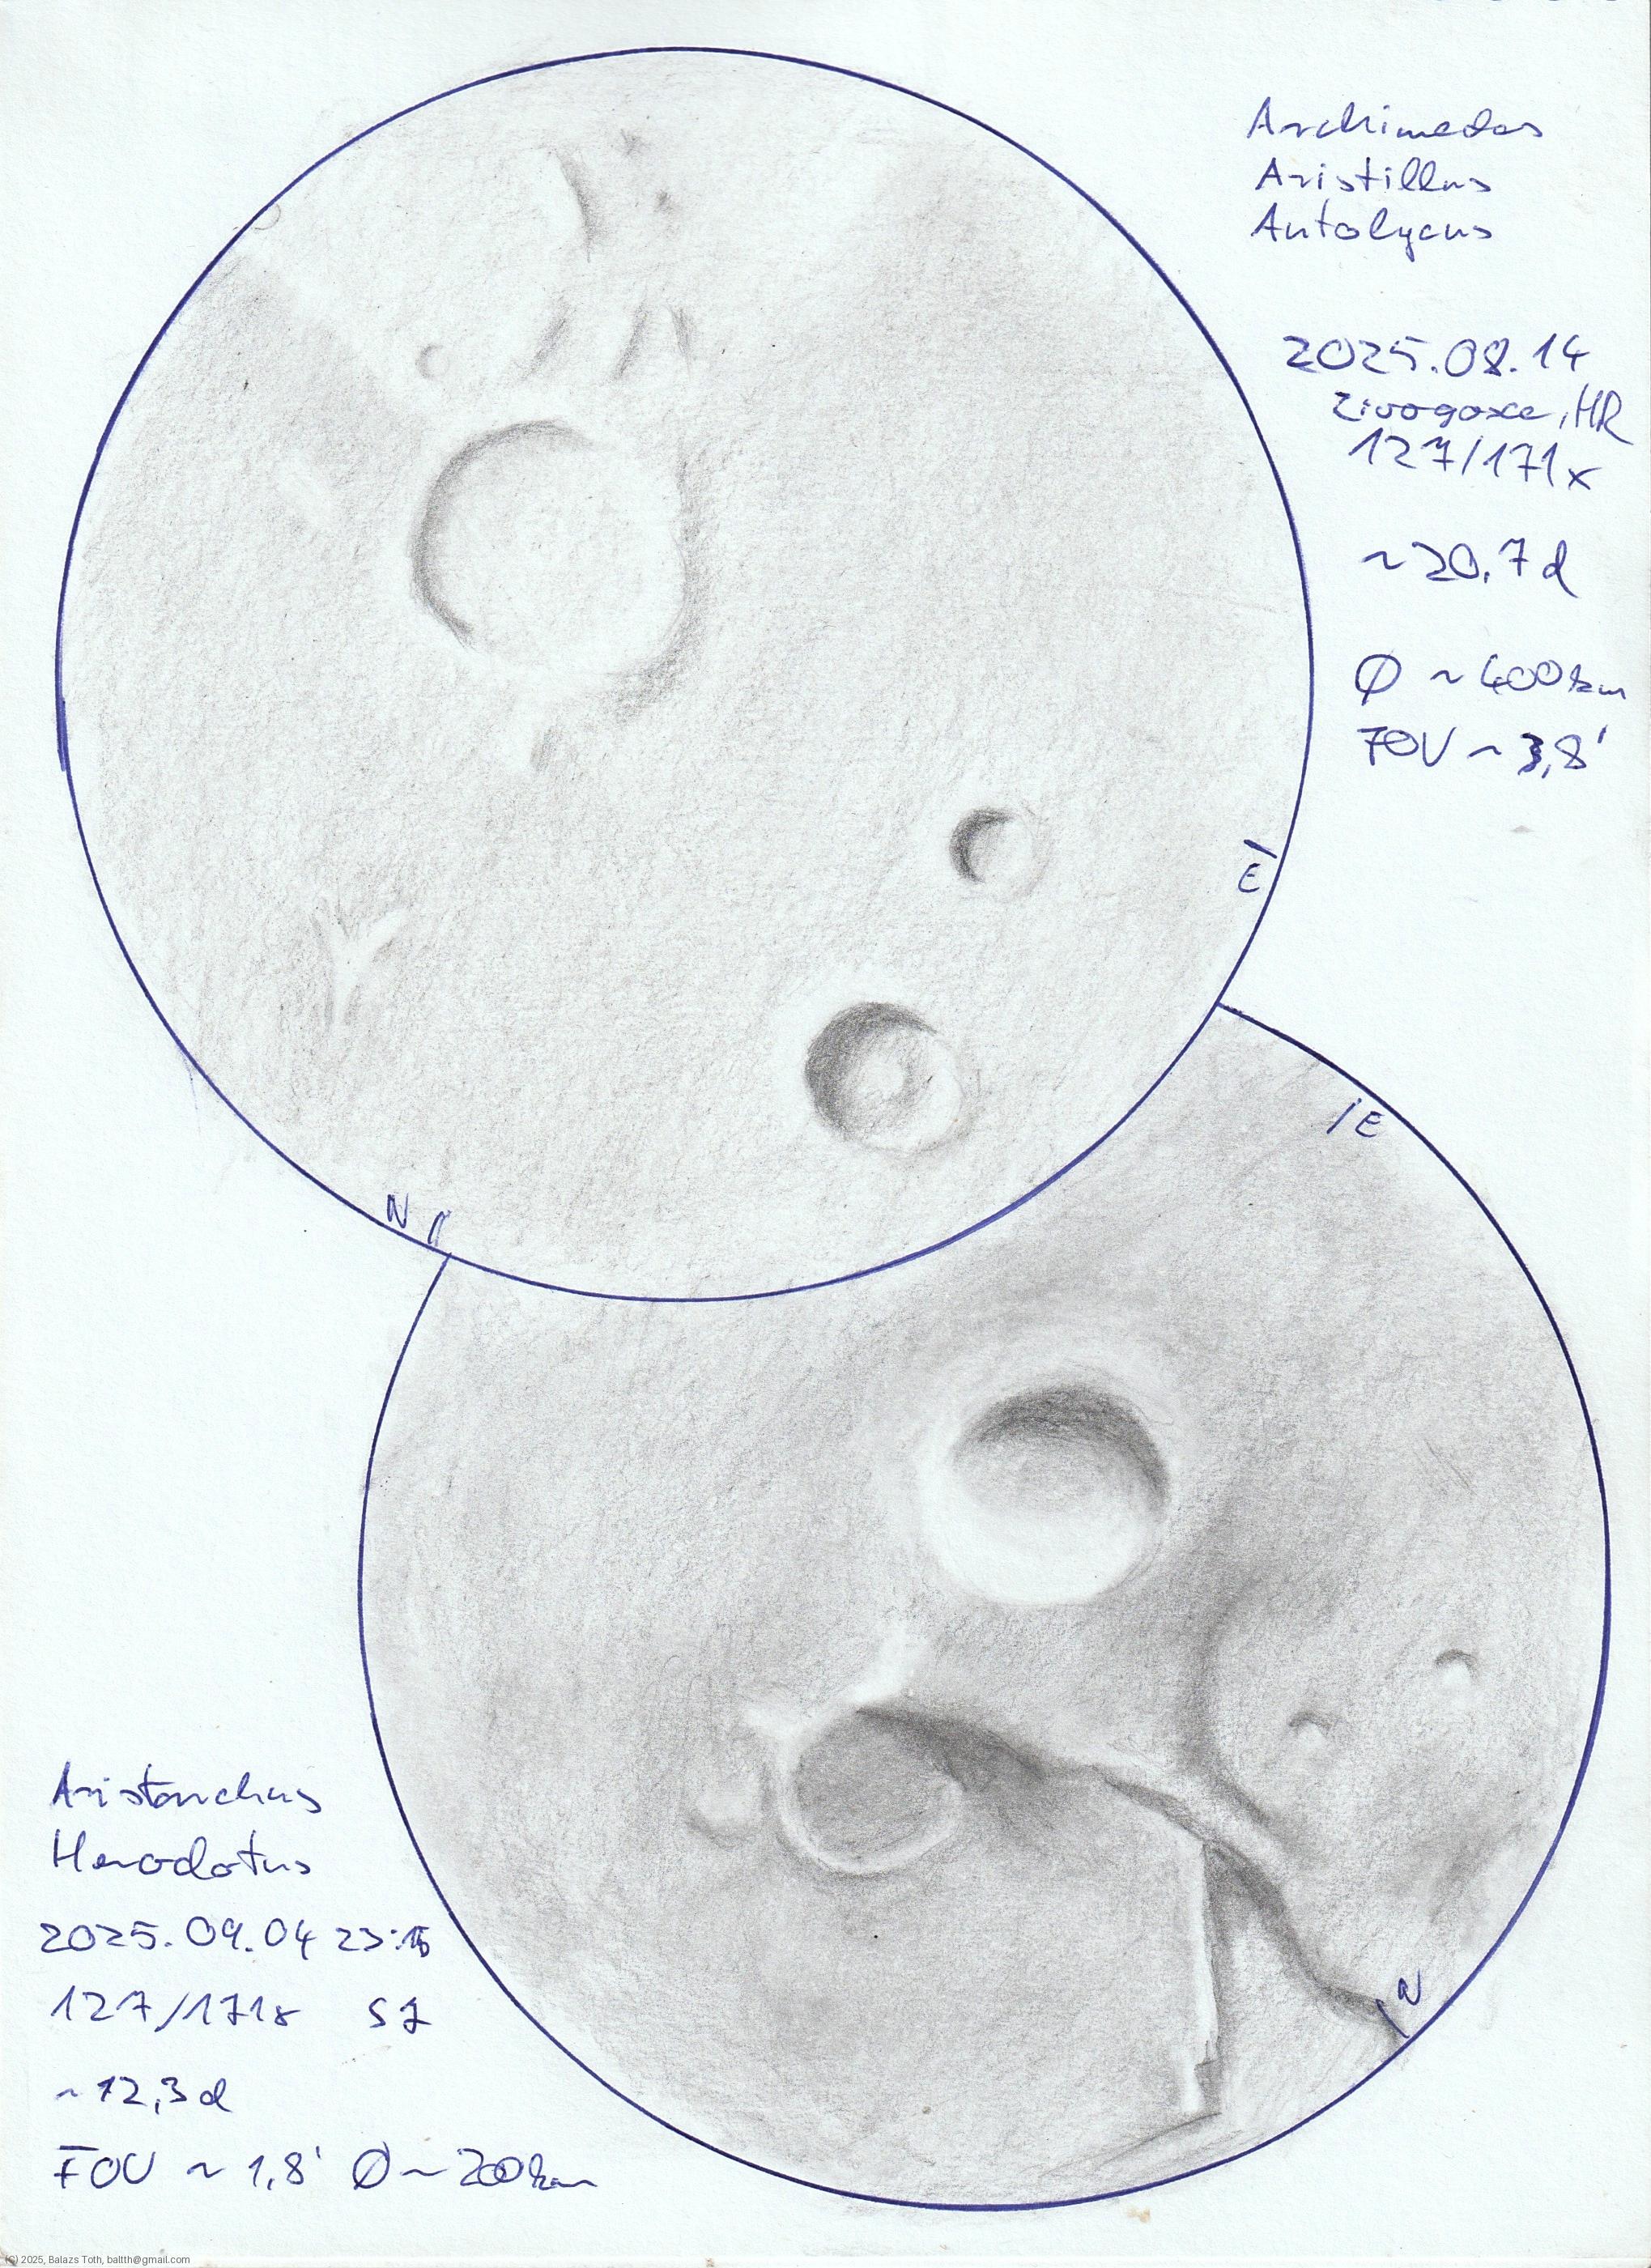 Archimedes
Aristillus
Autolycus
2025.08.14
Zivogosce, HR
127/171x
~20,7d
Ø ~400km
FOV ~3,8'
E
N
E
N
Aristarchus
Herodotus
2025.09.04 23:15
127/171x S7
~12,3d
FOV ~1,8' Ø~200km
(C) 2025, Balazs Toth, baltth@gmail.com